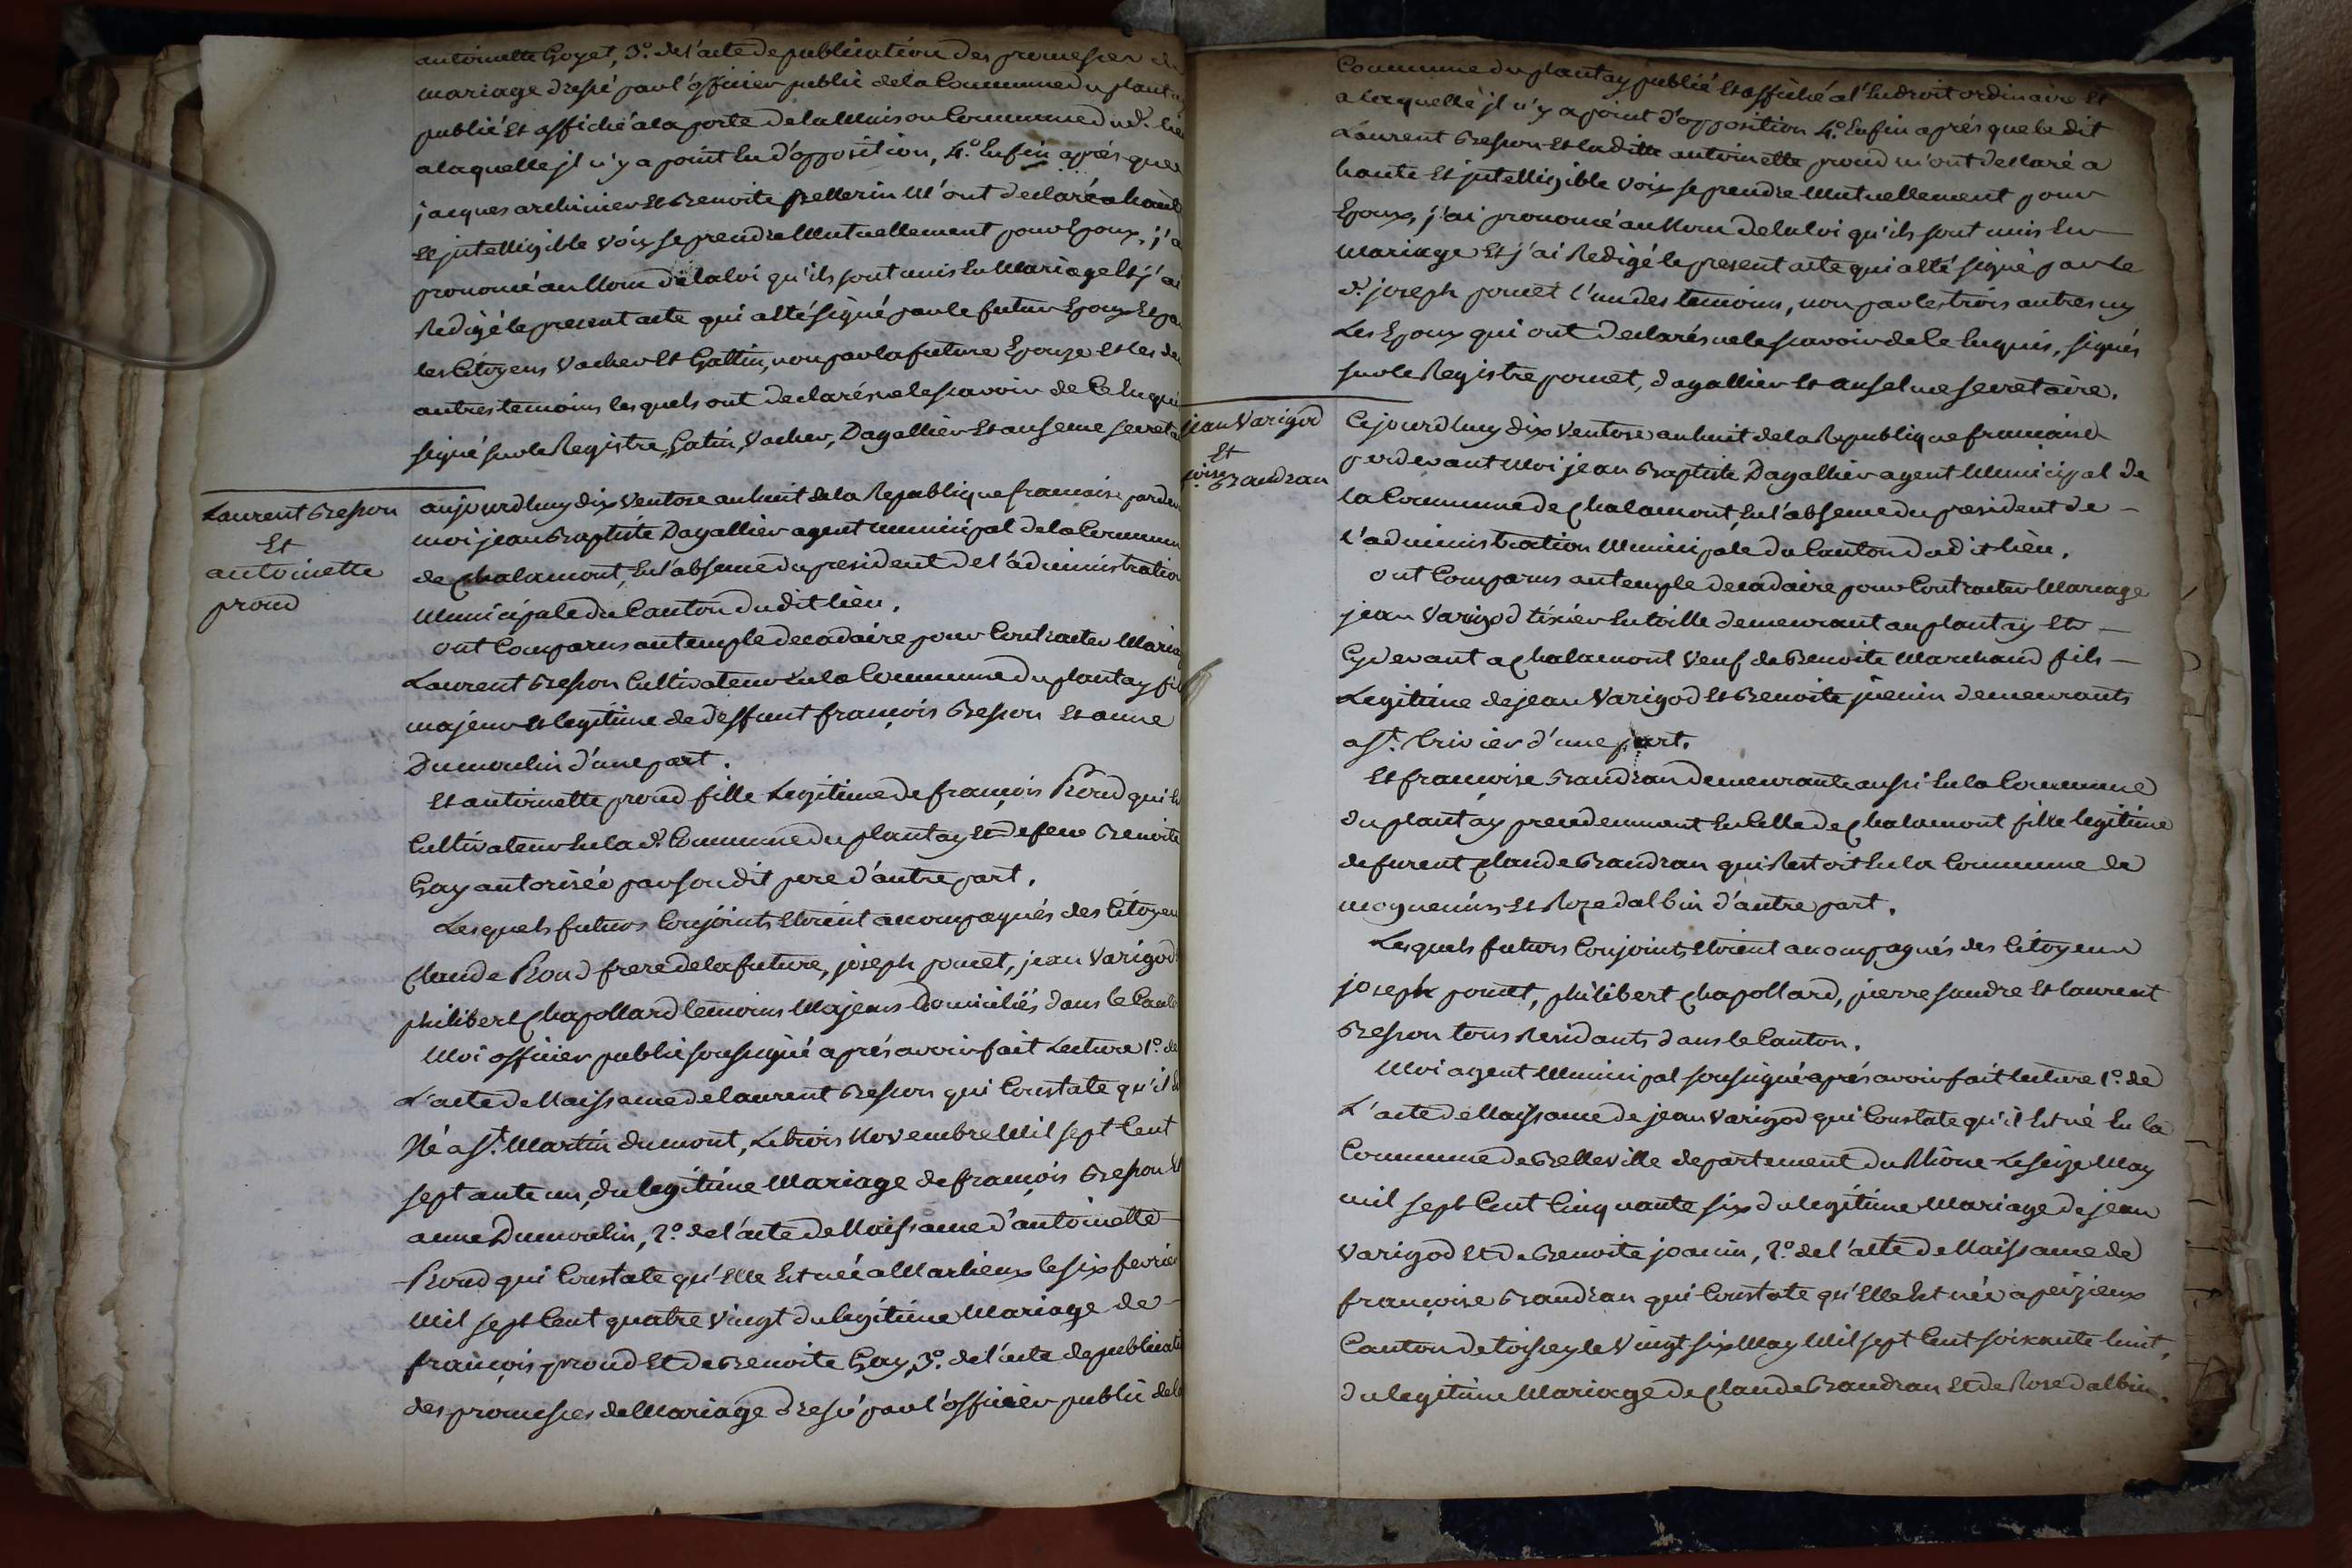 antoinette Goyet, 3.º de l'acte de publication des promesses de
mariage dressé par l'officier public de la Commune du planta
publié et affiché a la porte de la Maison Commune dud. lieu
a laquelle jl n'y a point Eu d'opposition, 4.º Enfin après que
jacques archinier et Benoite pellerin M'ont declaré a haute
et jntelligible voix se prendre Mutuellement pour Epoux, j'a
prononcé au Nom de la loi qu'ils sont unis En Mariage et j'ai
Redigé le present acte qui a Eté signé par le futur Epoux et pa
les Citoyens Vacher et Gattin, non par la future Epouse et les de
autres temoins lesquels ont declarés ne le scavoir de Ce Enqui
signé sur le Registre, Gatin, Vacher, Dagallier et anselme secreta
Laurent Bresson
Et
antoinette
proud
aujourdhuy dix Ventose an huit de la Republique francaise pardev
moi jean Baptiste Dagallier agent municipal de la Commun
de Chalamont, En l'absence du president de l'administration
Municipale du Canton dudit lieu.
ont Comparus au temple decadaire pour Contracter Maria
Laurent Bresson Cultivateur En la Commune du plantay fil
majeur et legitime de deffunt françois Bresson et anne
Dumoulin d'une part.
Et antoinette proud fille Legitime de françois Proud qui E
Cultivateur En la d. Commune du plantay et de feue Benoite
Gay autorisée par son dit pere d'autre part.
Lesquels futurs Conjoints Etoient accompagnés des Citoyen
Claude Proud frere de la future, joseph pomet, jean Varigod
philibert Chapollard temoins Majeurs Domiciliés dans le Canto
Moi officier public soussigné aprés avoir fait Lecture 1.º de
L'acte de Naissance de laurent Bresson qui Constate qu'il E
Né a S.t Martin dumont, Le trois Novembre Mil sept Cent
septante un, du legitime Mariage de françois Bresson et
anne Dumoulin, 2.º de l'acte de Naissance d'antoinette
Proud qui Constate qu'Elle Est née a Marlieux le six fevrier
Mil sept Cent quatre Vingt du legitime Mariage de
françois proud et de Benoite Gay, 3.º de l'acte de publicati
des promesses de Mariage dressé par l'officier public de la
Commune du plantay publié et affiché a l'Endroit ordinaire et
a laquelle jl n'y a point d'opposition 4.º Enfin aprés que le dit
Laurent Bresson et la ditte antoinette proud m'ont declaré a
haute et jntelligible Voix se prendre Mutuellement pour
Epoux, j'ai prononcé au Nom de la loi qu'ils sont unis En
Mariage et j'ai Redigé le present acte qui a Eté signé par le
d. joseph pomet l'un des temoins, non par les trois autres ny
Les Epoux qui ont declarés ne le scavoir de Ce Enquis, signés
sur le Registre pomet, dagallier et anselme secretaire.
jean Varigod
Et
Brandran
Cejourdhuy dix Ventose an huit de la Republique francaise
perdevant Moi jean Baptiste Dagallier agent Municipal de
la Commune de Chalamont, En l'absence du president de
l'administration Municipale du Canton dudit lieu.
ont Comparus au temple decadaire pour Contracter Mariage
jean Varigod tixier En toille demeurant au plantay Et
Cydevant a Chalamont Veuf de Benoite Marchand fils
Legitime de jean Varigod et Benoite juenin demeurants
a S.t trivier d'une part.
Et françoise Brandran demeurante aussi En la Commune
du plantay precedemment En Celle de Chalamont fille legitime
de furent Claude Brandran qui Restoit En la Commune de
mogneneins et Roze dalbin d'autre part.
Lesquels futurs Conjoints Etoient accompagnés des Citoyens
joseph pomet, philibert Chapollard, pierre sandre et laurent
Bresson tous Residants dans le Canton.
Moi agent Municipal soussigné aprés avoir fait lecture 1.º de
L'acte de Naissance de jean Varigod qui Constate qu'il Est né En la
Commune de Belleville departement du Rhône Le seize May
mil sept Cent Cinquante six du legitime Mariage de jean
Varigod et de Benoite joanin, 2.º de l'acte de Naissance de
françoise Brandran qui Constate qu'Elle Est née a peizieux
Canton de toissey le Vingt six May Mil sept Cent soixante huit,
du legitime Mariage de Claude Brandran et de Rose dalbin.